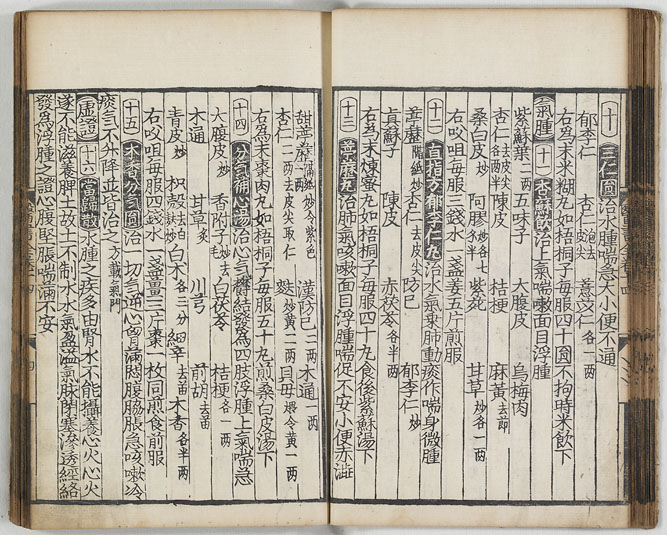 十 三仁圓 治水腫喘急大小便不通
郁李仁 杏仁 炮去皮尖 薏苡仁 各一兩
右爲末米糊丸如梧桐子每服四十圓不拘時米飮下
氣腫 十一 杏蘇飮 治上氣喘嗽面目浮腫
紫蘇葉 二兩 五味子 大腹皮 烏梅肉
杏仁 去皮尖各兩半 陳皮 桔梗 麻黃 去節
桑白皮 炒 阿膠 炒各七 紫菀 甘草 炒各一兩
右㕮咀每服三錢水一盞姜五片煎服
十二 直指方郁李仁丸 治水氣乘肺動痰作喘身微腫
葶藶 隔紙炒 杏仁 去皮尖 防己 郁李仁 炒
眞蘇子 陳皮 赤茯苓 各半兩
右爲末煉蜜丸如梧桐子每服四十丸食後紫蘇湯下
十三 葶藶丸 治肺氣咳嗽面目浮腫喘促不安小便赤澁
甜葶藶 二兩隔紙炒令紫色 漢防己 二兩 木通 一兩
杏仁 二兩去皮尖取仁 麩炒黃一兩 貝母 煨令黃一兩
右爲末棗肉丸如梧桐子每服五十丸煎桑白皮湯下
十四 分氣補心湯 治心氣欝結發爲四肢浮腫上氣喘急
大腹皮 炒 香附子 炒去毛 白茯苓 桔梗 各一兩
木通 甘草 炙 川芎 前胡 去苗
靑皮 炒 枳殼 麩炒 白朮 各三分 細辛 去苗 木香 各半兩
右㕮咀每服四錢水一盞薑三片棗一枚同煎食前服
十五 木香分氣圓 治一切氣逆心胷滿悶腹脇脹急咳嗽冷
痰氣不升降並皆治之 方載氣門
虛證 十六 當歸散 水腫之疾多由腎水不能攝養心火心火
遂不能滋養脾土故土不制水水氣盈溢氣脉閉塞滲透經絡
發爲浮腫之證心腹堅脹喘滿不安